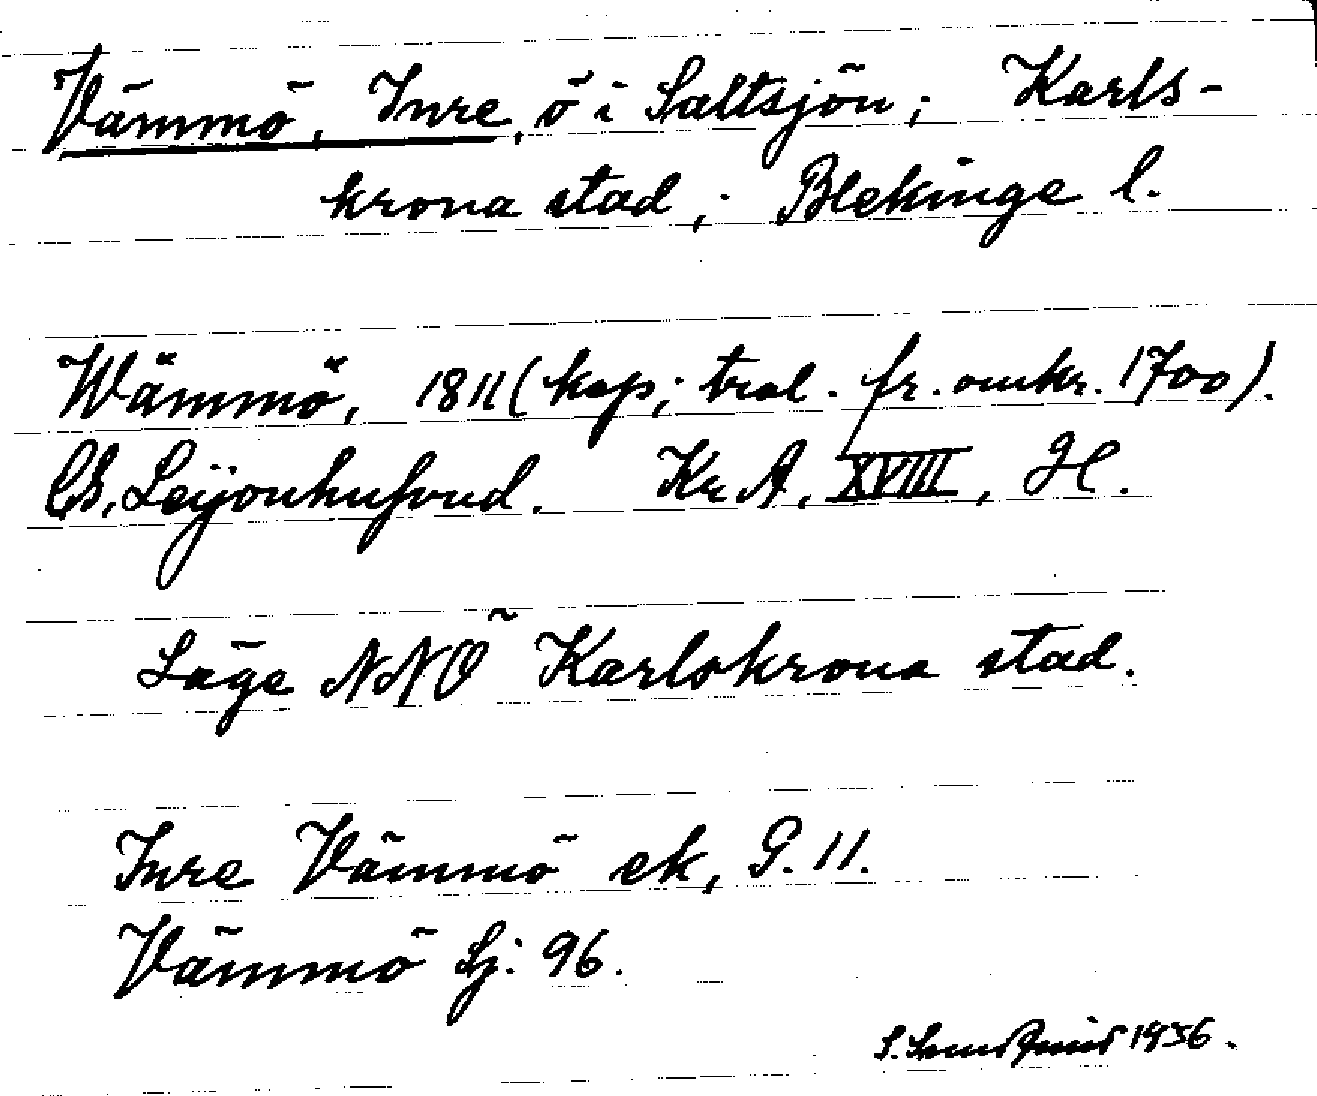 Vämmö, Inre, ö i Saltsjön; Karls-
krona stad; Blekinge l.
Wämmö, 1811 (kop; trol. fr. omkr. 1700).
CG. Leijonhufvud. KrA, XVIII, H.
Läge NNÖ Karlskrona stad.
Inre Vämmö ek, G. 11.
Vämmö Sj: 96.
S. 1956.